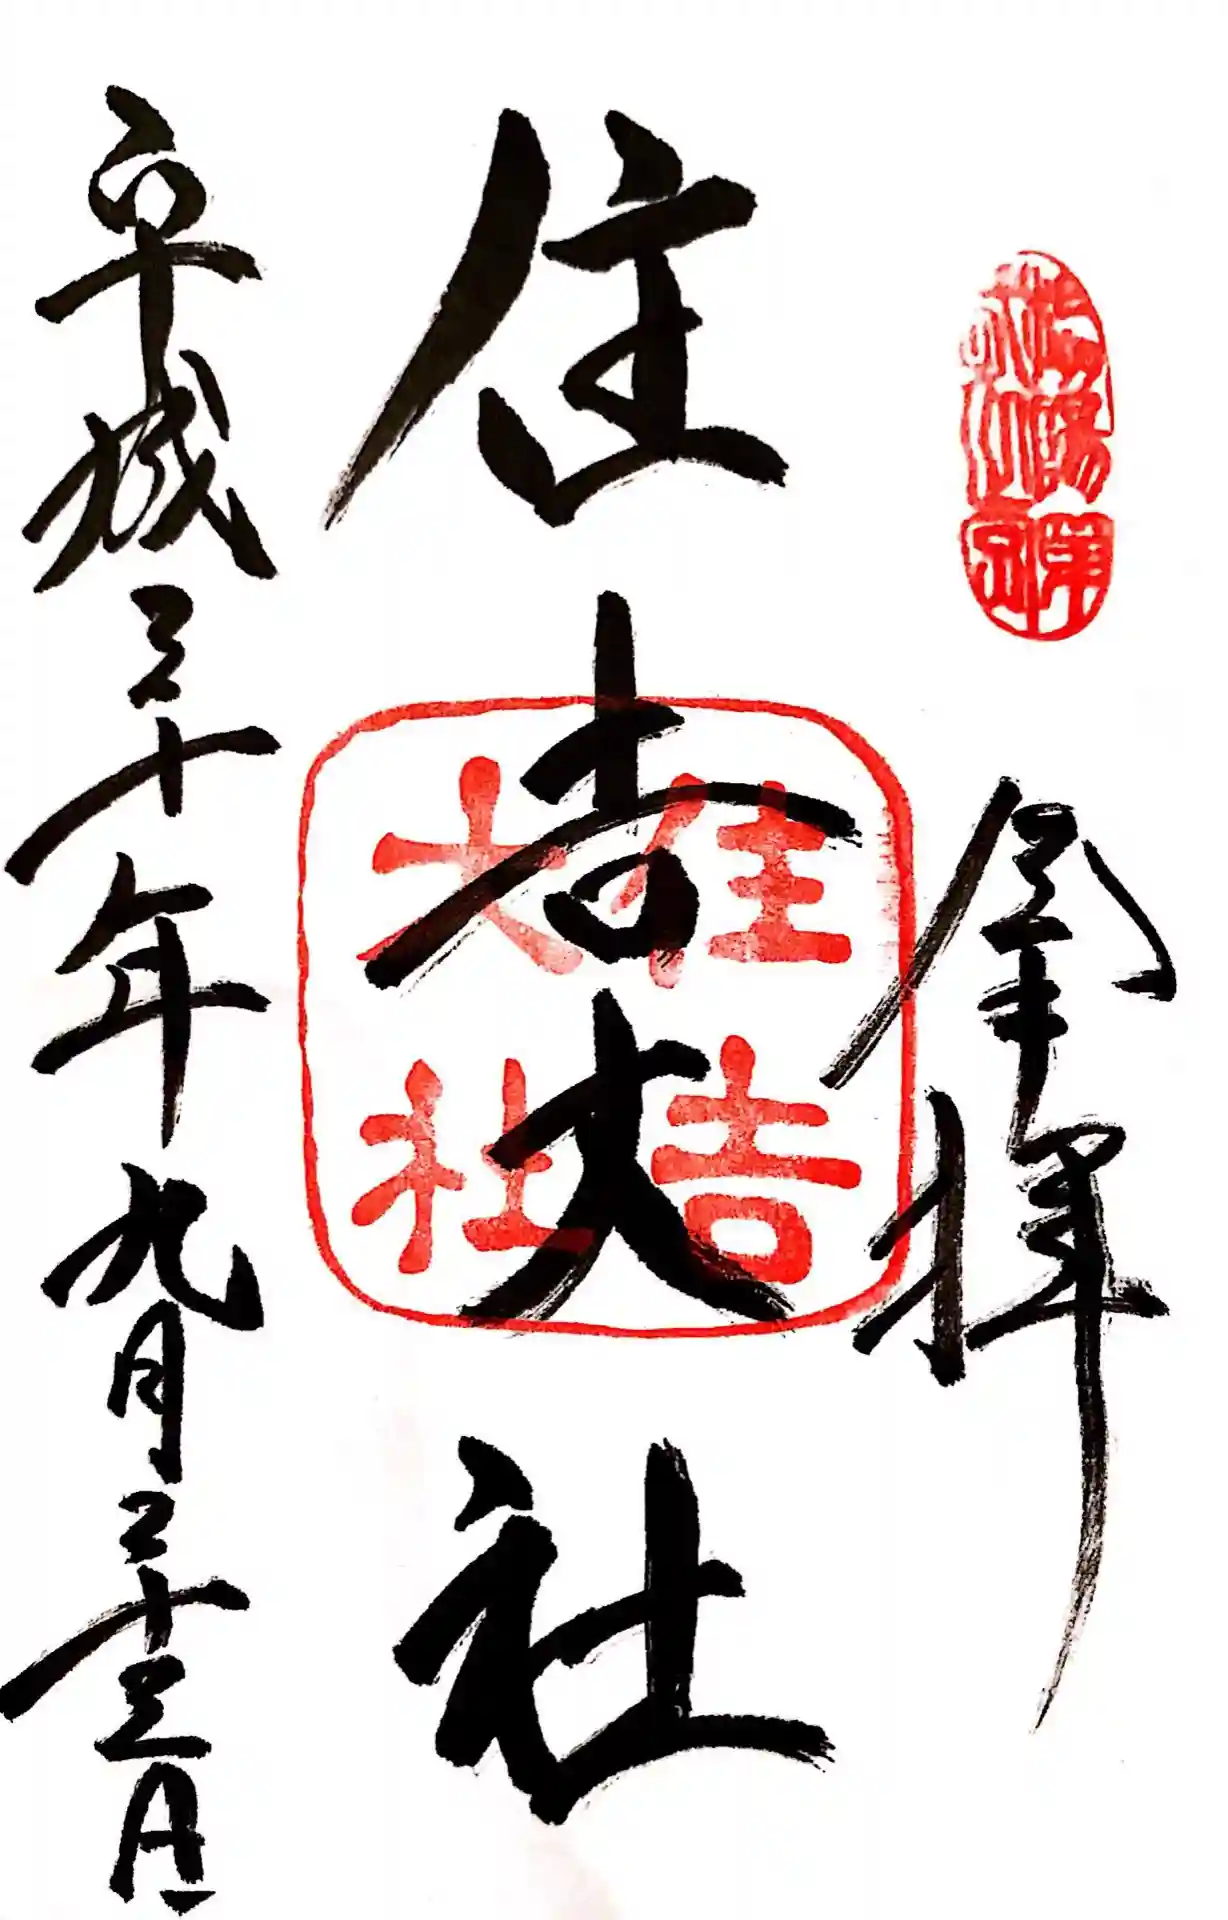 奉拝
住吉大社
住吉
大社
平成三十年九月二十三日